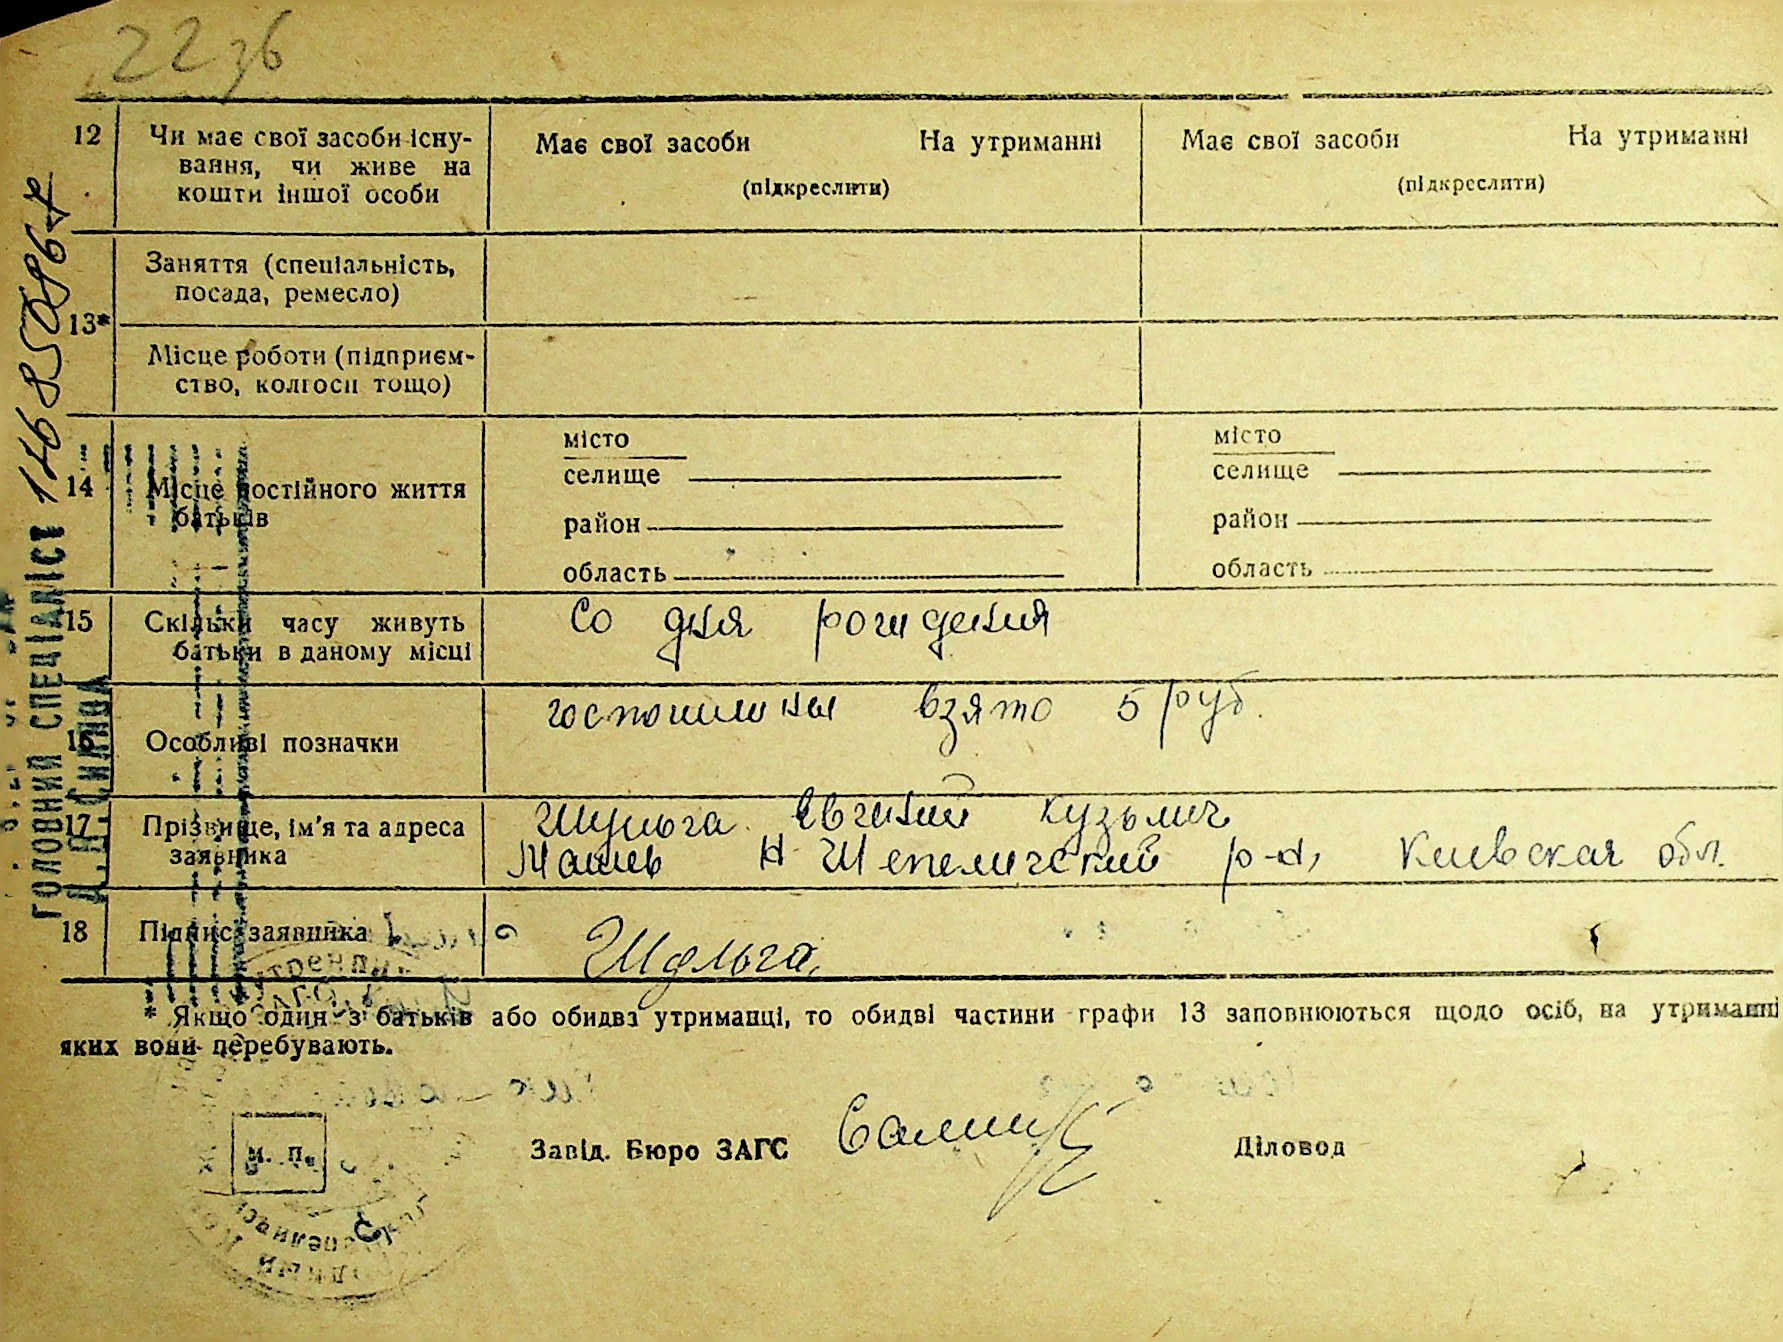 2236
12 Чи має свої засоби існу-
вання, чи живе на
кошти іншої особи
Має свої засоби На утриманні
(підкреслити)
Має свої засоби На утриманні
(підкреслити)
13* Заняття (спеціальність,
посада, ремесло)
Місце роботи (підприєм-
ство, колгосп тощо)
14 Місце постійного життя
батьків
місто
селище
район
область
місто
селище
район
область
15 Скільки часу живуть
батьки в даному місці
Со дня рождения
16 Особливі позначки
госпошлины взято 5 руб.
17 Прізвище, ім'я та адреса
заявника
Шульга Евгений Кузьмич
Машев Н Шепеличский р-н, Киевская обл.
18 Підпис заявника
Шульга
* Якщо один з батьків або обидва утриманці, то обидві частини графи 13 заповнюються щодо осіб, на утриманні
яких вони перебувають.
м. п.
Завід. Бюро ЗАГС
Діловод
ГОЛОВНИЙ СПЕЦІАЛІСТ